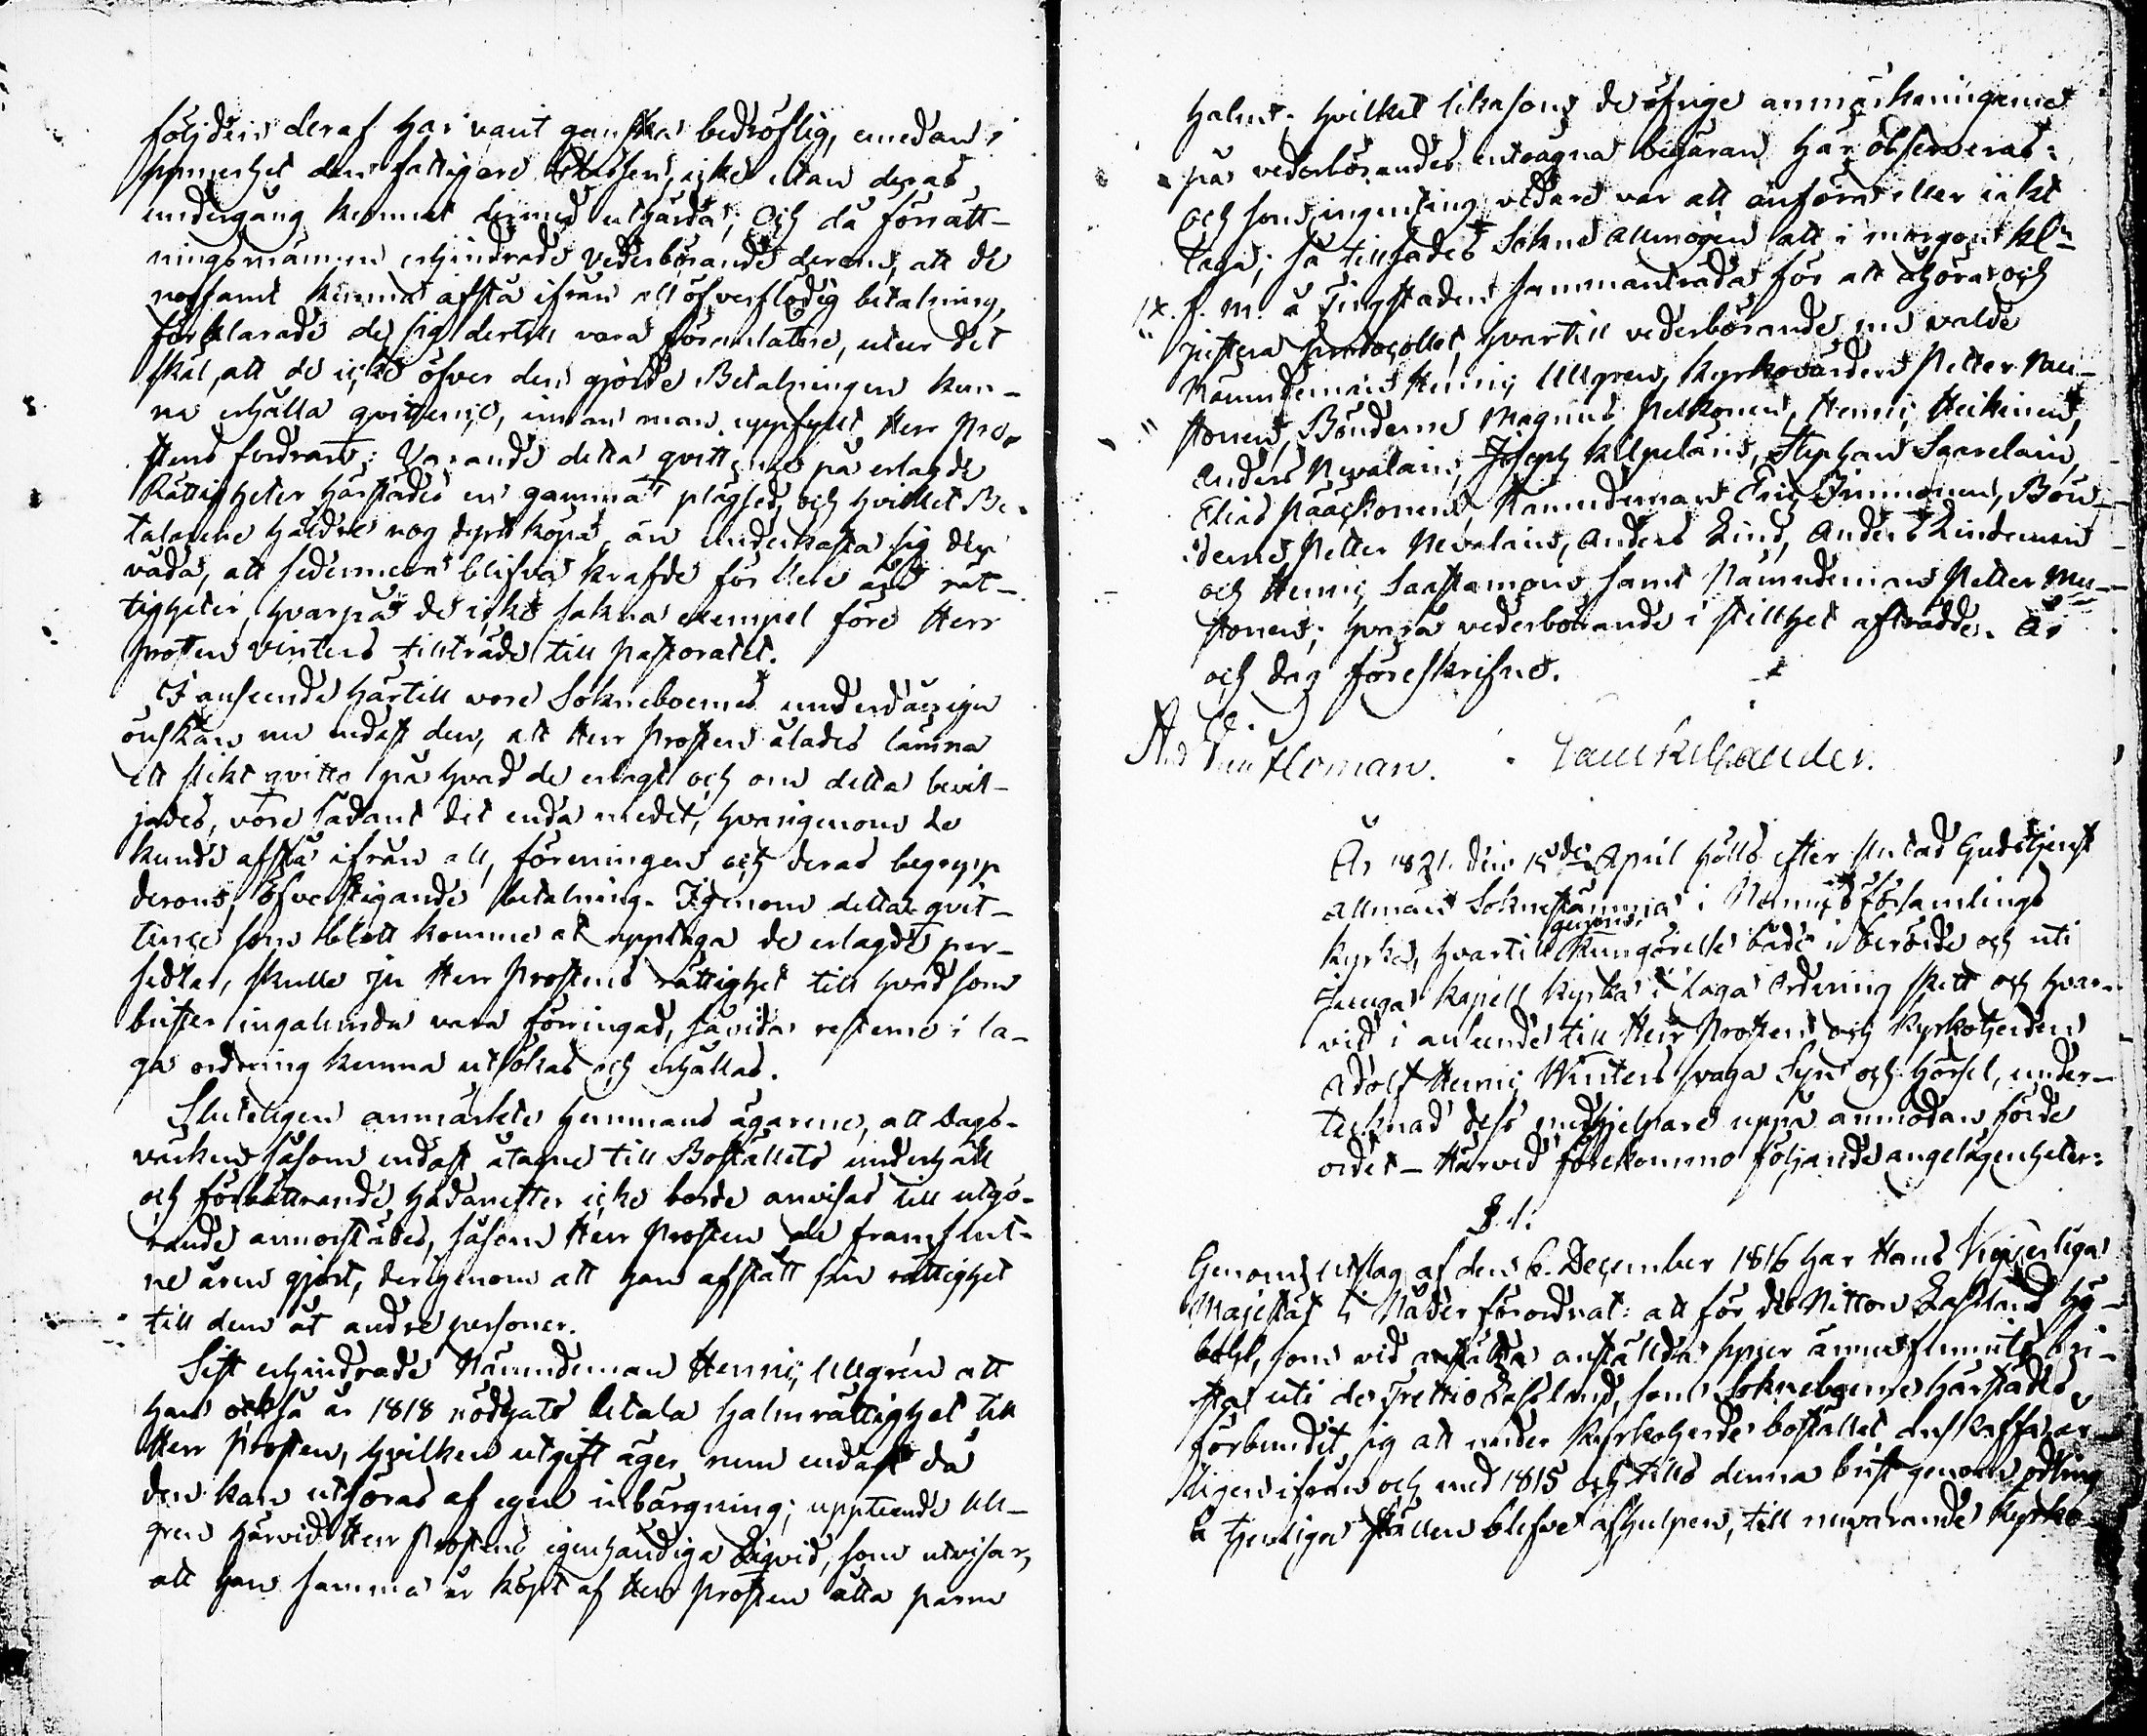 följden deraf har varit ganska bedröflig, emedan i
synnerhet den fattigare Classen, icke utan deras
undergång kunnat dermed utgärda; Och då förrätt-
ningsmännen erhindrade vederbörande derom, att de
noxsamt kunna afstå ifrån all öfverflödig betalning,
förklarade de sig dertill vara förmulatne, utur det
skäl, att de icke öfver den gjorde Betalningen kun-
na erhålla qvittence, innan man uppfyllt Herr Pro-
stens fordran; Varande detta qvittence på erlagde
Rättigheter härstädes en gammal plägsed, och hvilket Be-
talarene heldre nog dyrt köpa, än underkasta sig den
våda, att sedermera blifva krafde för flere års rät-
tigheter, hvarpå de icke sakna exempel före Herr
Prosten Winters tillträde till Pastoratet.
I anseende härtill vore Sokneboernes underdånige
önskan nu endast den, att Herr Prosten ålades lämna
ett slikt qvitto på hvad de erlagt och om detta bevil-
jades, vore sådant det enda medet, hvarigenom de
kunde afstå ifrån all, föreningen och deras begrepp
derom, öfverstigande betalning. Igenom detta qvit-
tence som blott komme at upptaga de erlagde per-
sedlar, skulle ju Herr Prostens rättighet till hvad som
brister ingalunda vara förringad, såvida resterne i la-
ga ordning kunna utsökas och erhållas.
Sluteligen anmärkte hemmans ägarene, att Dags-
värken såsom endast åtagne till Boställets underhåll
och förbättrande, hädanefter icke borde anvisas till utgö-
rande annorstädes, såsom Herr Prosten de framflut-
ne åren gjort, derigenom att han afstått sin rättighet
till dem åt andre personer.
Sist erhindrade Nämndeman Henric Ullgrén att
han också år 1818 nödgats betala halmrättighet till
Herr Prosten, hvilken utgift äger rum endast då
den kan utgöras af egen inbärgning; uppteende Ull-
gren härvid Herr Prostens egenhändiga Liqvid, som utvisar,
att han samma år köpt af Herr Prosten åtta parm
halm. hvilket likasom de öfrige anmärkningarne
på vederbörandes enträgna begäran har observerats:
och som ingenting vidare var att anföra eller i akt
taga; så tillsades Sokne Allmogen att i morgon kln
IX. f. m. å Tingstaden sammanträda för att åhöra och
justera Protocollet, hvartill vederbörande nu valde
Nämndeman Henric Ullgren, Kyrkovärden Petter Nau-
konen, Bönderne Magnus Pelkonen, Henric Heikinen,
Anders Nevalain, Joseph Kilpelain, Stephan Saarelain,
Elias Pääckonen, Nämndeman Eric Immonen, Bön-
derne Petter Nevalain, Anders Lind, Anders Lindeman
och Henric Saastamoin, samt Nämndeman Petter Mu-
stonen; hvarå vederbörande i stillhet afträdde. År
och dag föreskrifne.
År 1821. den 15de April hölls efter slutad Gudstjenst
Allmän Soknestämma i Nurmis församlings
genom
Kyrka, hvartill Kungörelse både i beröde och uti
Juuga Kapell Kyrka i laga Ordning skett och hvar-
vid i anseende till Herr Prosten och Kyrkoherden
Adolf Henric Winters svaga Syn och hörsel, under-
tecknad dess medhjelpare uppå anmodan förde
ordet – Härvid förekommo följande angelägenheter:
§. 1.
Genom utslag af den 6. December 1816 har Hans Kejserliga
Majestät i Nåder förordnat: att för de Nitton Lassland Hö-
bohl, som vid anställda syner ännu funnits bri-
sta uti de Trettio Lassland, som Sokneboerne härstädes
förbundit sig att under Kyrkoherde bostället anskaffa, är-
ligen ifrån och med 1815 och tills denna brist genom odling
å tjenliga ställen blifvet afhulpen, till nuvarande Kyrko-